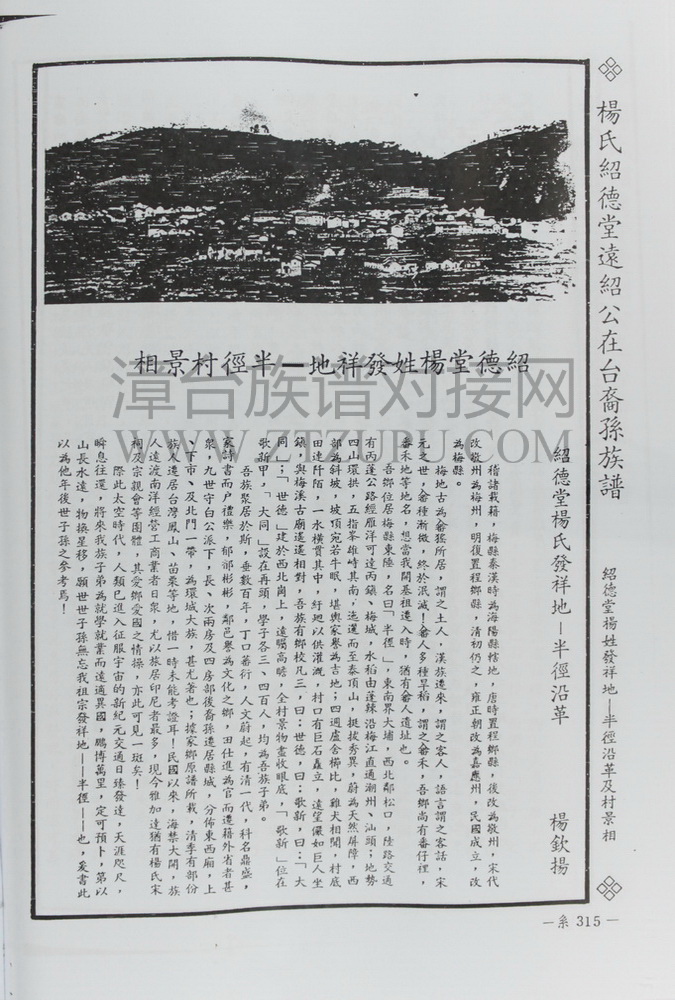 楊氏紹德堂遠紹公在台裔孫族譜
紹德堂楊姓發祥地—半徑沿革及村景相
相景村徑半—地祥發姓楊堂德紹
漳台族谱对接网
WWW.ZTZUPU.COM
紹德堂楊氏發祥地—半徑沿革
楊欽揚
稽諸載籍，梅縣秦漢時為海陽縣轄地，唐時置程鄉縣，後改為敬州，宋代
改敬州為梅州，明復置程鄉縣，清初仍之，雍正朝改為嘉應州，民國成立，改
為梅縣。
梅地古為畬猺所居，謂之土人，漢族遷來，謂之客人，語言謂之客話，宋
元之世，畬種漸微，終於泯滅！畬人多種旱稻，謂之畬禾，吾鄉尚有畬仔裡，
畬禾地等地名，想當我開基祖遷入時，猶有畬人遺址也。
吾鄉位居梅縣東陲，名曰「半徑」，東南界大埔，西北鄰松口，陸路交通
有丙蓬公路經雁洋可達丙鎮、梅城，水稻由蓬辣沿梅江直通潮州、汕頭；地勢
四山環拱，五指峯雄峙其南，迤邐而至泰頂山，挺拔秀異，蔚為天然屏障，西
部為斜坡，坡頂宛若牛眠，堪輿家譽為吉地；四週廬舍櫛比，雞犬相聞，村底
田連阡陌，一水橫貫其中，紆迴以供灌溉，村口有巨石矗立，遠望儼如巨人坐
鎮，與梅溪古廟遙遙相對，吾族有鄉校凡三，曰：世德，曰：歌新，曰：「大
同」；「世德」建於西北崗上，遠矚高瞻，全村景物盡收眼底，「歌新」位在
歌新甲，「大同」設在再頭，學子各三、四百人，均為吾族子弟。
吾族聚居於斯，垂數百年，丁口蕃衍，人文蔚起，有清一代，科名鼎盛，
家詩書而戶禮樂，郁郁彬彬，鄰邑譽為文化之鄉，因仕進為官而遷籍外省者甚
衆，九世守白公派下，長、次兩房及四房部後裔孫遷居縣城，分佈東西廂，上
、下市、及北門一帶，為環城大族，甚尤著也；據家鄉原譜所栽，清季有部份
族人遷居台灣鳳山、苗栗等地，惜一時未能考證耳！民國以來，海禁大開，族
人遠渡南洋經營工商業者日衆，尤以旅居印尼者最多，現今雅加達猶有楊氏宋
祠及宗親會等團體，其愛鄉愛國之情操，亦此可見一斑矣！
際此太空時代，人類已進入征服宇宙的新紀元交通日臻發達，天涯咫尺，
瞬息往還，將來我族子弟為就學就業而遠適異國，鵬博萬里，定可預卜，第以
山長水遠，物換星移，願世世子孫無忘我祖宗發祥地——半徑——也，爰書此
以為他年後世子孫之參考焉！
—系 315—